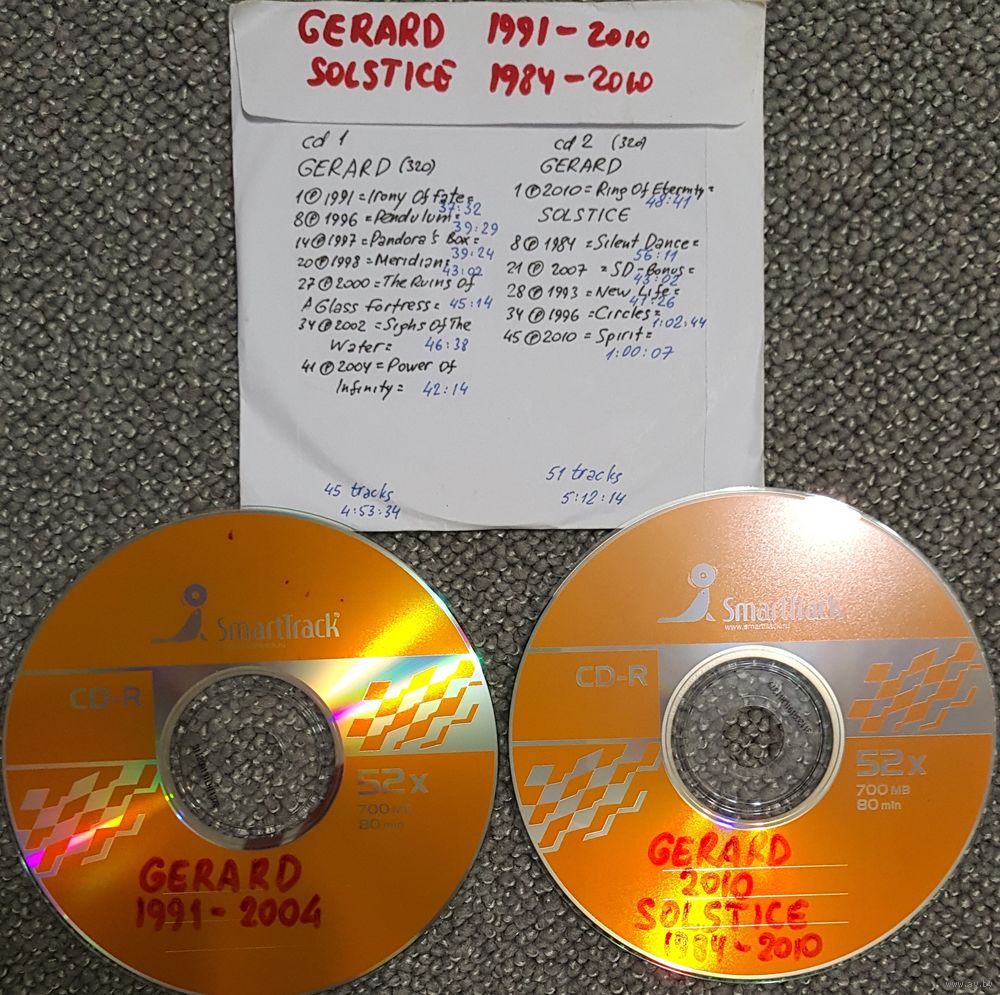 GERARD 1991-2010
SOLSTICE 1984-2010
cd 1
GERARD (320)
1 Ⓟ 1991 = Irony Of Fate = 37:32
8 Ⓟ 1996 = Pendulum = 39:29
14 Ⓟ 1997 = Pandora's Box = 39:24
20 Ⓟ 1998 = Meridian = 43:02
27 Ⓟ 2000 = The Ruins Of
A Glass Fortress = 45:14
34 Ⓟ 2002 = Sighs Of The
Water = 46:38
41 Ⓟ 2004 = Power Of
Infinity = 42:14
45 tracks
4:53:34
cd 2 (320)
GERARD
1 Ⓟ 2010 = Ring Of Eternity = 48:41
SOLSTICE
8 Ⓟ 1984 = Silent Dance = 56:11
21 Ⓟ 2007 = SD-Bonus = 43:02
28 Ⓟ 1993 = New Life = 41:26
34 Ⓟ 1996 = Circles = 1:02:44
45 Ⓟ 2010 = Spirit =
1:00:07
51 tracks
5:12:14
SmartTrack
CD-R
52x
700 MB
80 min
GERARD
1991-2004
SmartTrack
www.smarttrack.ru
CD-R
52x
700 MB
80 min
GERARD
2010
SOLSTICE
1984-2010
www.ay.by